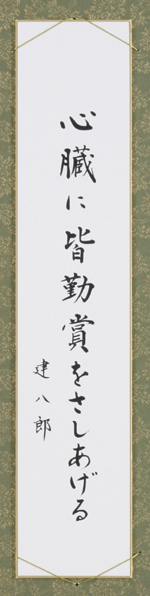 心臓に皆勤賞をさしあげる
建八郎